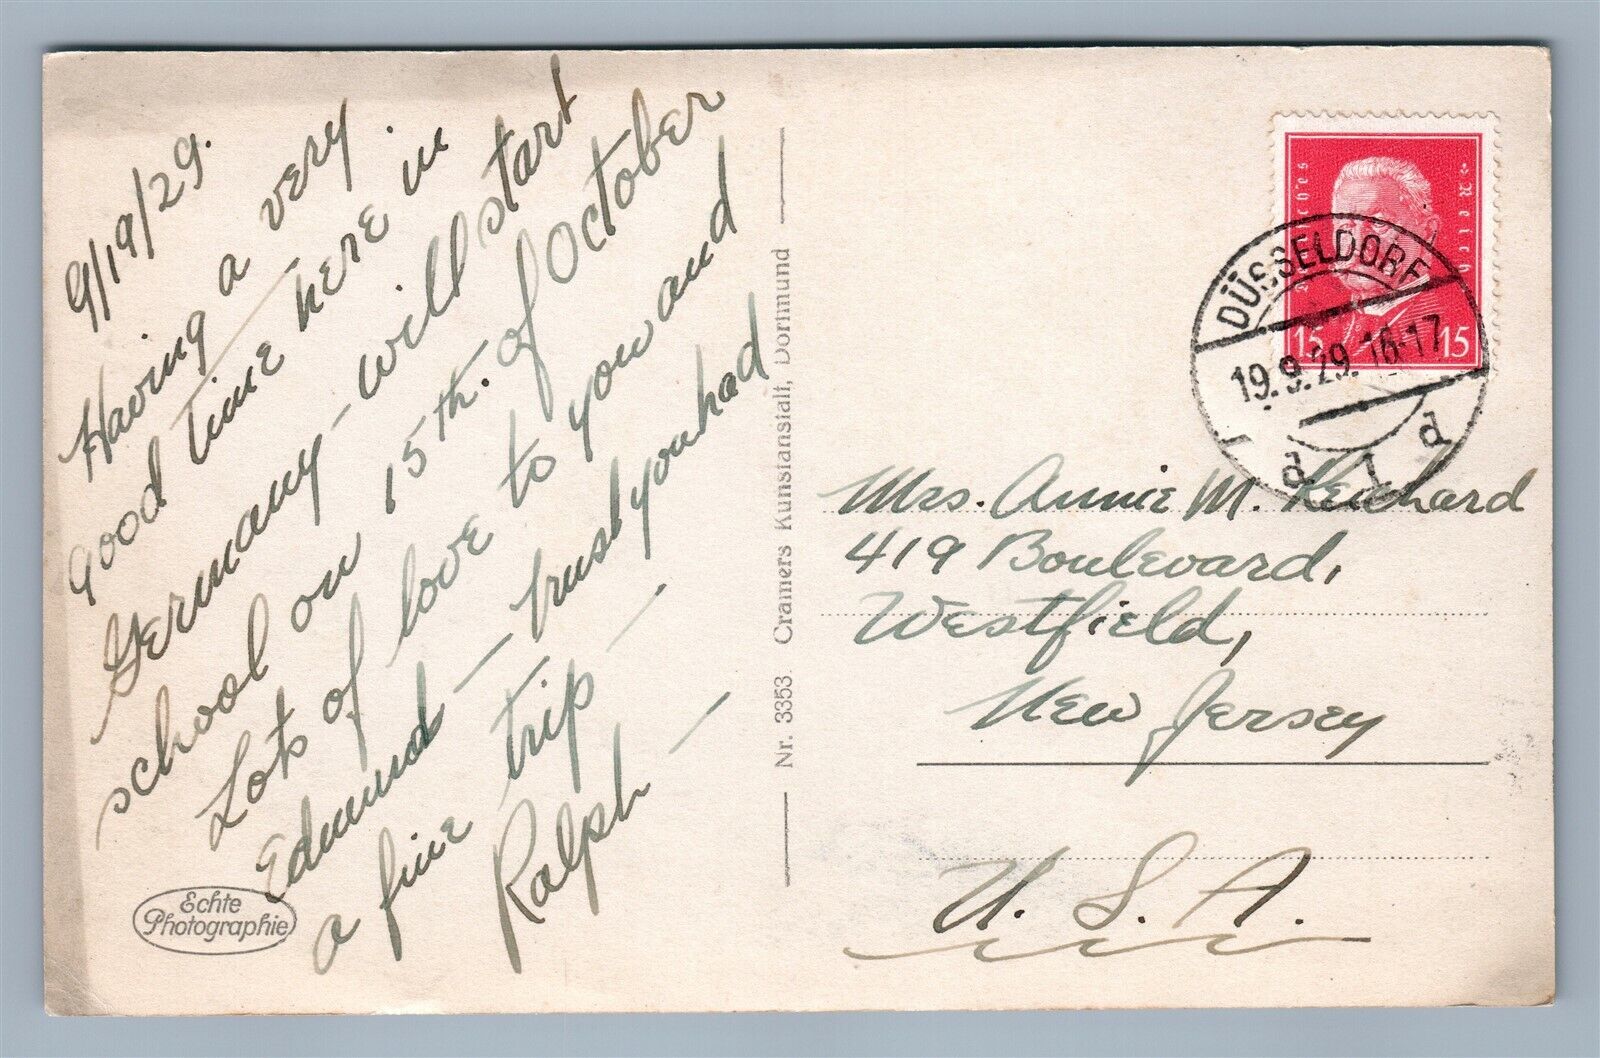 9/19/29.
Having a very
good time here in
Germany - will start
school on 15th. of October
Lots of love to you and
Edmund - trust you had
a fine trip -
Ralph -
Echte
Photographie
Nr. 3353. Cramers Kunstanstalt, Dortmund
Deutsches Reich
15 15
DÜSSELDORF
19.9.29.16-17
1 d
Mrs. Annie M. Reichard
419 Boulevard,
Westfield,
New Jersey
U. S. A.